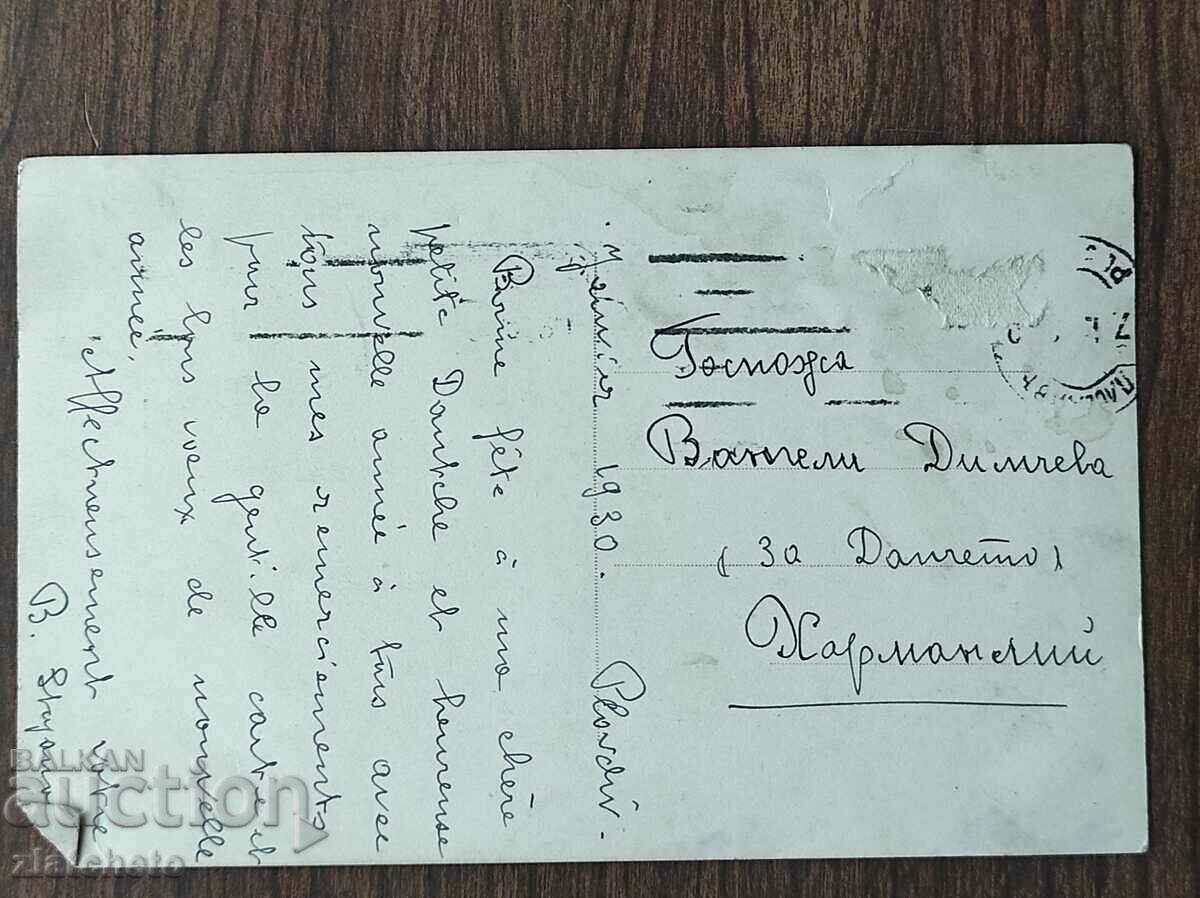 . Janvier 1930. Plovdiv.
Bonne fête à ma chère
petite Dantche et heureuse
nouvelle année à tous avec
tous mes remerciements
pour la gentille carte et
les bons voeux de nouvelle
année.
Affectueusement votre
B.
Госпожа
Вангели Димчева
(За Данчето)
Харманлий
PL
BALKAN
auction
zlatcheto